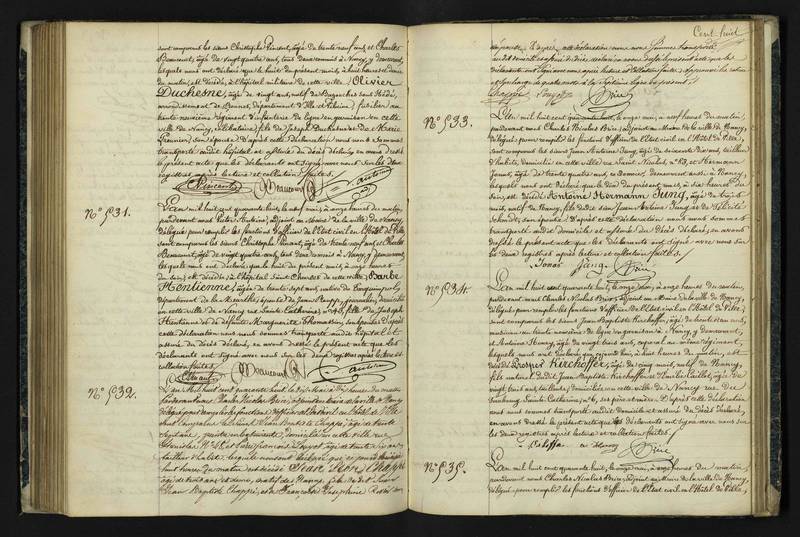 sont comparus les sieurs Christophe Vincent, âgé de trente neuf ans, et Charles
Beaucourt, âgé de vingt quatre ans, tous deux commis à Nancy, y demeurant,
lesquels nous ont déclaré que le huit du présent mois, à huit heures et demie
du matin, est décédé, à l'hôpital militaire de cette ville, Olivier
Duchesne, âgé de vingt ans, natif de
arrondissement de Rennes, département d'Ille et Vilaine, fusilier au
régiment d'infanterie de ligne en garnison en cette
ville de Nancy, célibataire, fils de Joseph Duchesne et de Marie
son épouse. D'après cette déclaration nous nous sommes
transporté audit hôpital et assuré du décès déclaré, en avons dressé
le présent acte que les déclarants ont signé avec nous sur les deux
registres après lecture et collation faites.
Vincent Beaucourt Antoine
N° 531.
L'an mil huit cent quarante huit, le neuf mai, à onze heures du matin,
pardevant nous Antoine, adjoint au Maire de la ville de Nancy,
délégué pour remplir les fonctions d'officier de l'État civil en l'Hôtel de Ville,
sont comparus les sieurs Christophe Vincent, âgé de trente neuf ans, et Charles
Beaucourt, âgé de vingt quatre ans, tous deux commis à Nancy, y demeurant,
lesquels nous ont déclaré que le huit du présent mois, à onze heures
du soir, est décédée, à l'hôpital Saint Charles de cette ville, Barbe
Hentienne, âgée de trente sept ans, native de
département de la Meurthe, épouse de Jean
en cette ville de Nancy rue Sainte Catherine, n° fille de Joseph
Hentienne et de défunte Marguerite Thomassin, son épouse. D'après
cette déclaration nous nous sommes transporté audit hôpital et
assuré du décès déclaré, en avons dressé le présent acte que les
déclarants ont signé avec nous sur les deux registres après lecture et
collation faites.
Vincent Beaucourt Antoine
N° 532.
L'an mil huit cent quarante huit, le dix mai, à heures du matin
pardevant nous Charles Nicolas Brice, adjoint au Maire de la ville de Nancy
délégué pour remplir les fonctions d'officier de l'État civil en l'Hôtel de Ville
sont comparus le sieur Jean Baptiste Chappé, âgé de trente
ans, domicilié en cette ville rue
tailleur d'habits, lesquels nous ont déclaré que ce jourd'hui à
huit heures du matin est décédé Jean Léon Chappé
âgé de trois ans et demi, natif de Nancy, fils du dit sieur
Jean Baptiste Chappé, et de Françoise Joséphine
Cent huit
épouse. D'après cette déclaration nous nous sommes transporté
audit domicile et assuré du décès déclaré, en avons dressé le présent acte que les
déclarants ont signé avec nous après lecture et collation faites.
Chappé Brice
N° 533.
L'an mil huit cent quarante huit, le onze mai, à neuf heures du matin,
pardevant nous Charles Nicolas Brice, adjoint au Maire de la ville de Nancy,
délégué pour remplir les fonctions d'officier de l'État civil en l'Hôtel de Ville,
sont comparus les sieurs Jean Antoine Jung, âgé de soixante dix ans, tailleur
d'habits, domicilié en cette ville rue Saint Nicolas, n° 59, et Hermann
âgé de trente quatre ans, demeurant aussi à Nancy,
lesquels nous ont déclaré que le dix du présent mois, à six heures du
soir, est décédé Antoine Hermann Jung, âgé de trois
mois, natif de Nancy, fils du dit sieur Jean Antoine Jung et de
son épouse. D'après cette déclaration nous nous sommes
transporté audit domicile et assuré du décès déclaré, en avons
dressé le présent acte que les déclarants ont signé avec nous sur
les deux registres après lecture et collation faites.
Jung Brice
N° 534.
L'an mil huit cent quarante huit, le onze mai, à onze heures du matin,
pardevant nous Charles Nicolas Brice, adjoint au Maire de la ville de Nancy,
délégué pour remplir les fonctions d'officier de l'État civil en l'Hôtel de Ville,
sont comparus les sieurs Jean Baptiste Kirchoffer, âgé de trente
musicien au régiment de ligne en garnison à Nancy, y demeurant,
et Antoine âgé de vingt trois ans, caporal au même régiment,
lesquels nous ont déclaré que ce jourd'hui, à huit heures du matin, est
décédé Prosper Kirchoffer, âgé de cinq mois, natif de Nancy,
fils naturel du dit Jean Baptiste Kirchoffer et de Caillot, âgée de
vingt trois ans, domiciliés en cette ville de Nancy rue du
faubourg Sainte Catherine, n° 6, ses père et mère. D'après cette déclaration
nous nous sommes transporté audit domicile et assuré du décès déclaré,
en avons dressé le présent acte que les déclarants ont signé avec nous sur
les deux registres après lecture et collation faites.
Brice
N° 535.
L'an mil huit cent quarante huit, le onze mai, à onze heures du matin,
pardevant nous Charles Nicolas Brice, adjoint au Maire de la ville de Nancy,
délégué pour remplir les fonctions d'officier de l'État civil en l'Hôtel de Ville,